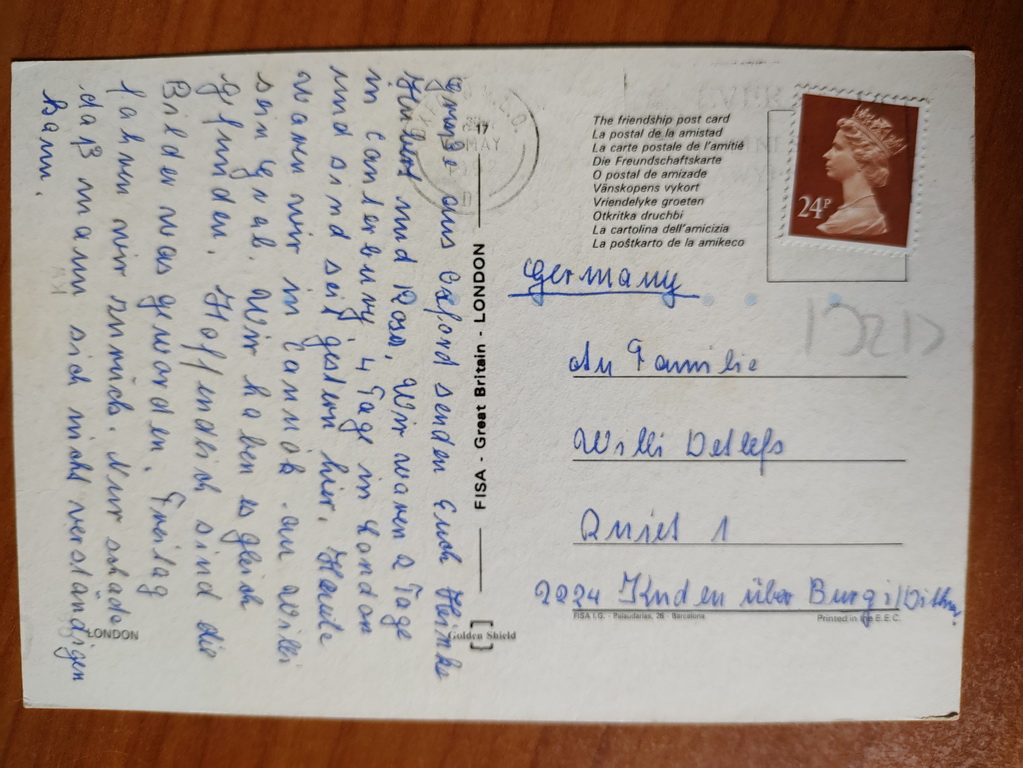 Grüße aus Oxford senden Euch Heinke
Hubert und Rosa. Wir waren 2 Tage
in Canterbury, 4 Tage in London
und sind seit gestern hier. Heute
waren wir in Cannok an Willi
sein Grab. Wir haben es gleich
gefunden. Hoffendlich sind die
Bilder was geworden. Freitag
fahren wir zurück. Nur schade
daß mann sich nicht verständigen
kann.
LONDON
17
MAY
FISA - Great Britain - LONDON
Golden Shield
The friendship post card
La postal de la amistad
La carte postale de l'amitié
Die Freundschaftskarte
O postal de amizade
Vänskopens vykort
Vriendelyke groeten
Otkritka druchbi
La cartolina dell'amicizia
La poŝtkarto de la amikeco
24P
Germany
An Familie
Willi Detlefs
Quiet 1
2224 Knden über Burg i/Dithm.
FISA I.G. - Palaudarias, 26 - Barcelona
Printed in the E.E.C.